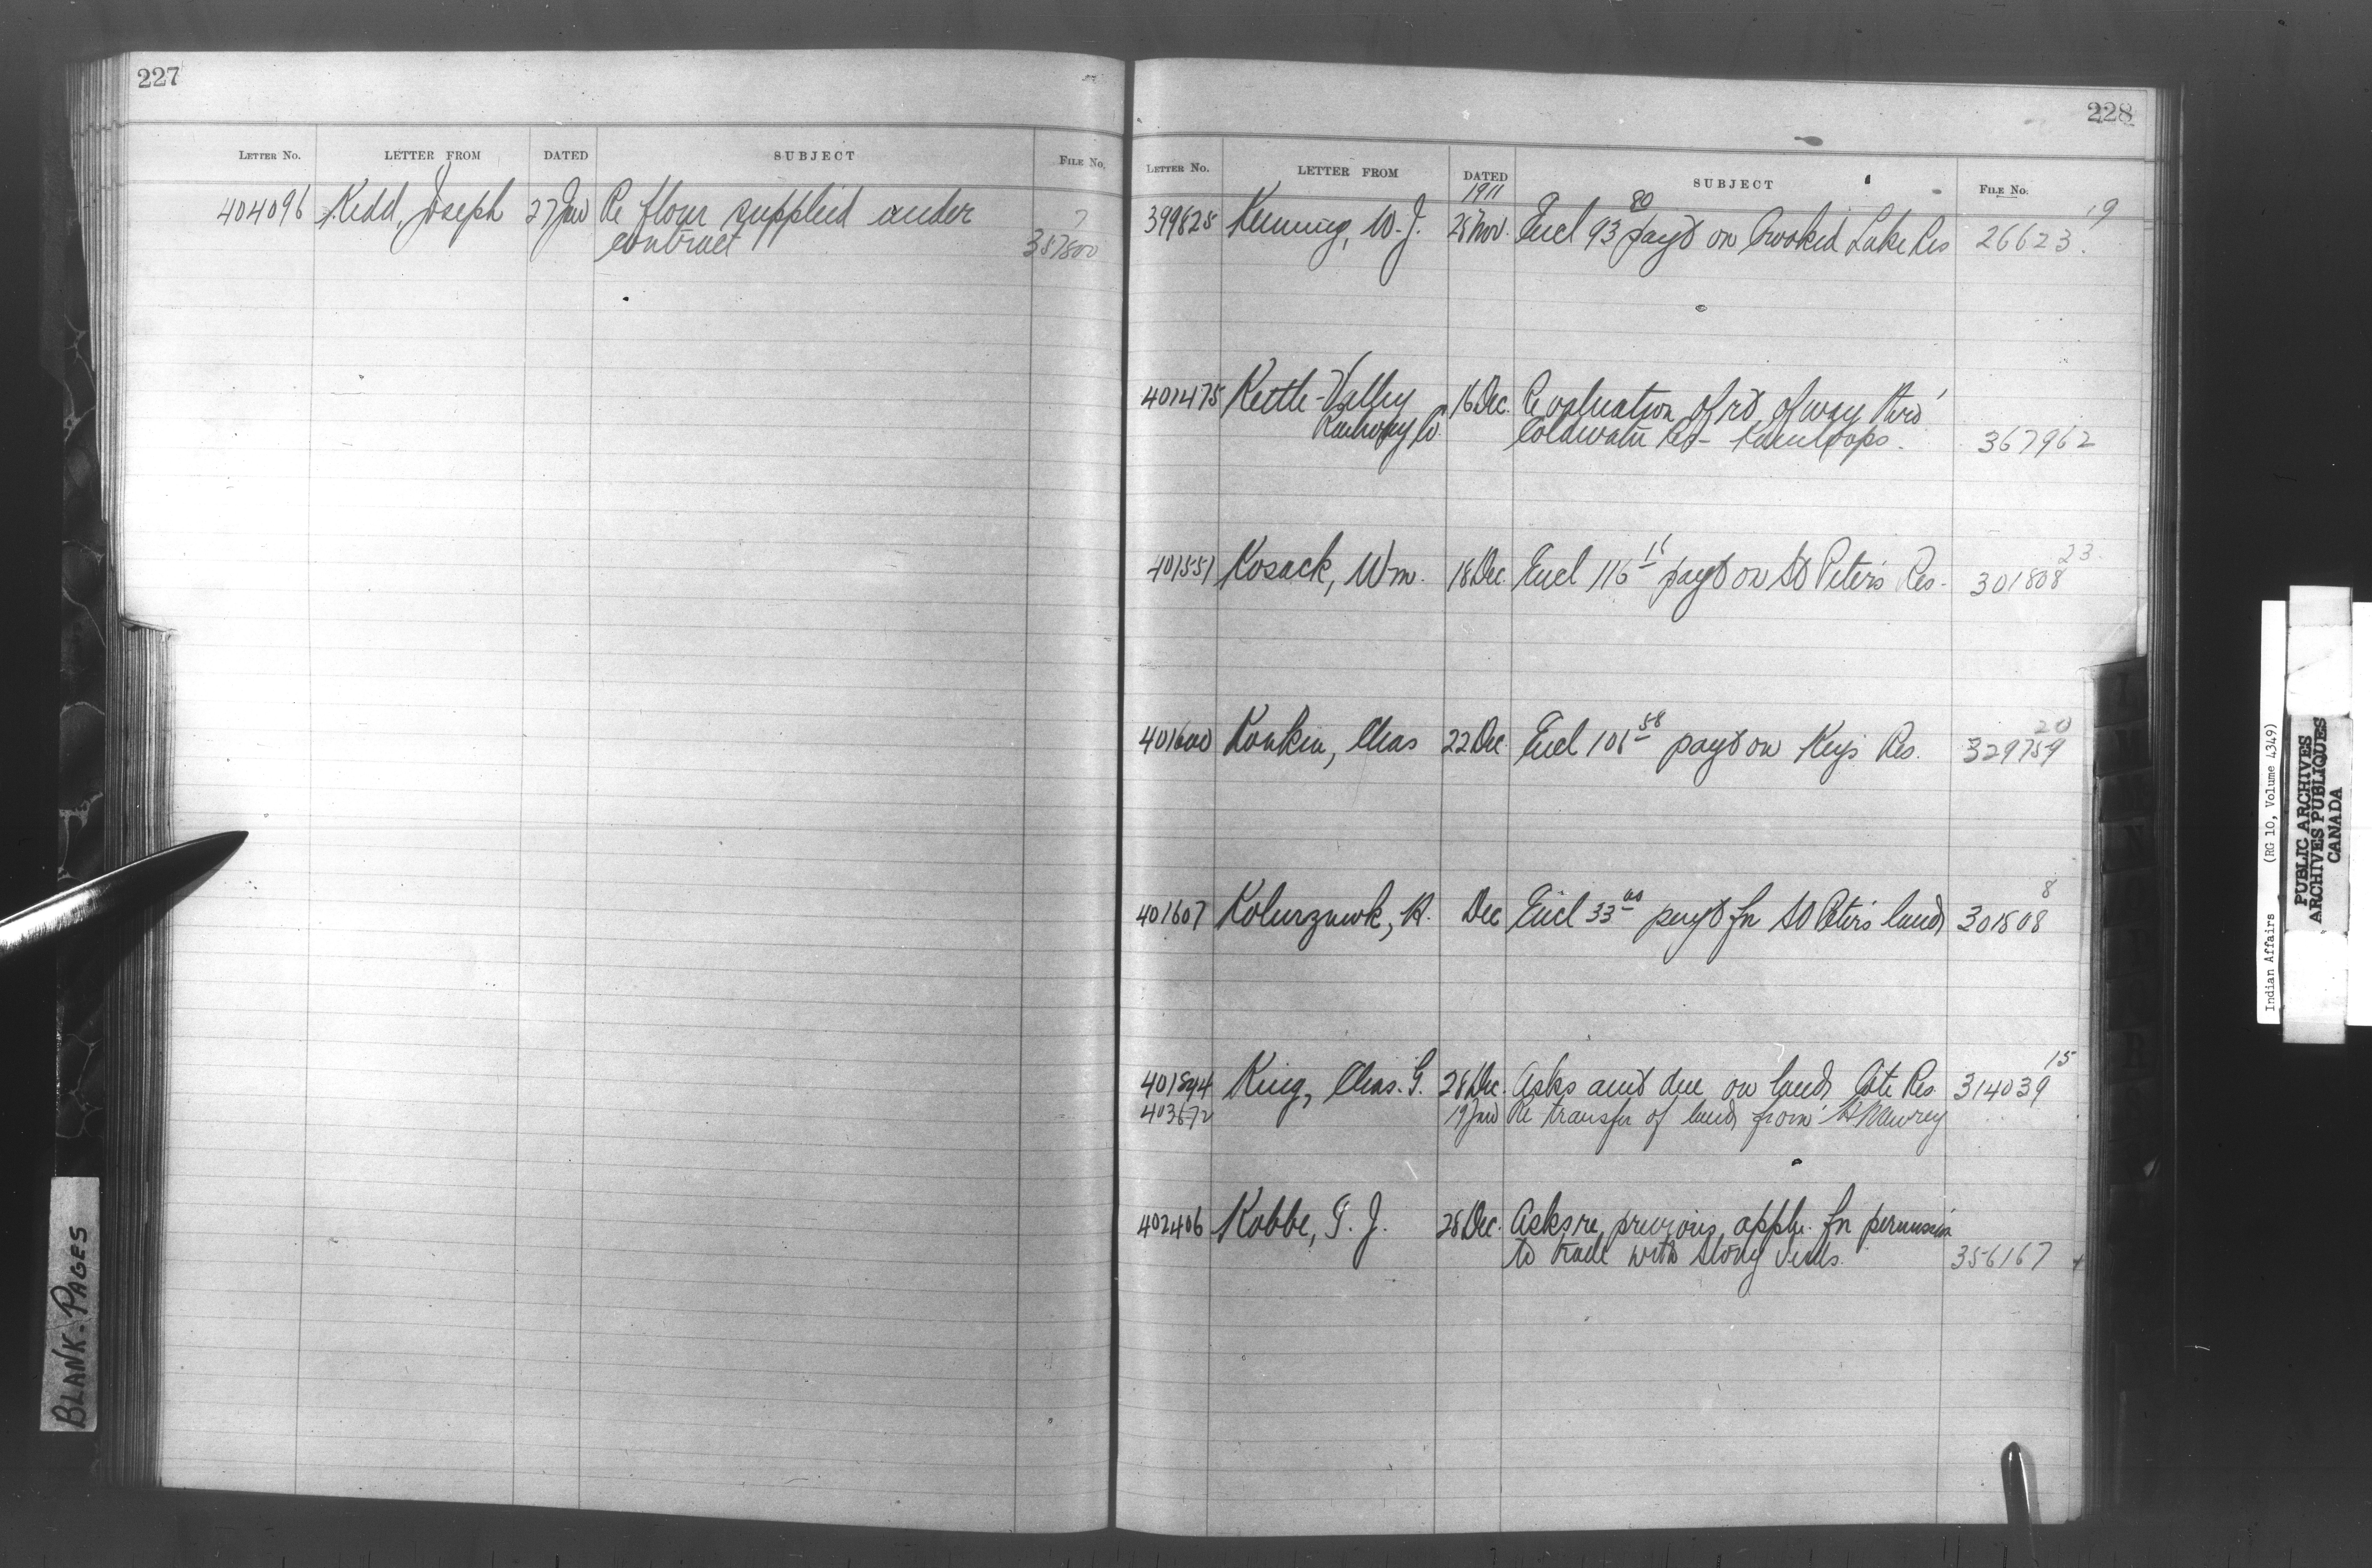 227
LETTER NO. LETTER FROM DATED SUBJECT FILE No.
404096 Kidd, Joseph 27 Jan Re flour supplied under
contract 7
387800
228
LETTER NO. LETTER FROM DATED SUBJECT FILE No.
1911
399828 W. J. 28 Nov. Encl 93 80 payt on Crooked Lake Res 26623. 19
401475 Kettle Valley 16 Dec. Re valuation of rt of way thro'
Railway Co. Coldwater Res - Kamloops. 367962
401551 Kosack, Wm. 18 Dec. Encl 116 16 payt on St Peter's Res. 301808 23
401600 Konkin, Chas 22 Dec Encl 101 58 payt on Keys Res. 329759 20
401607 Dec Encl 33 payt fr St Peter's lands 301808 8
401894 King, Chas. G. 28 Dec. Asks amt due on lands Cote Res 314039 15
403672 19 Jan Re transfer of lands from
402406 Kobbe, T. J. 28 Dec. Asks re previous appln. for permission
to trade with Stony Inds. 356167
BLANK-PAGES
Indian Affairs (RG 10, Volume 4349)
PUBLIC ARCHIVES
ARCHIVES PUBLIQUES
CANADA